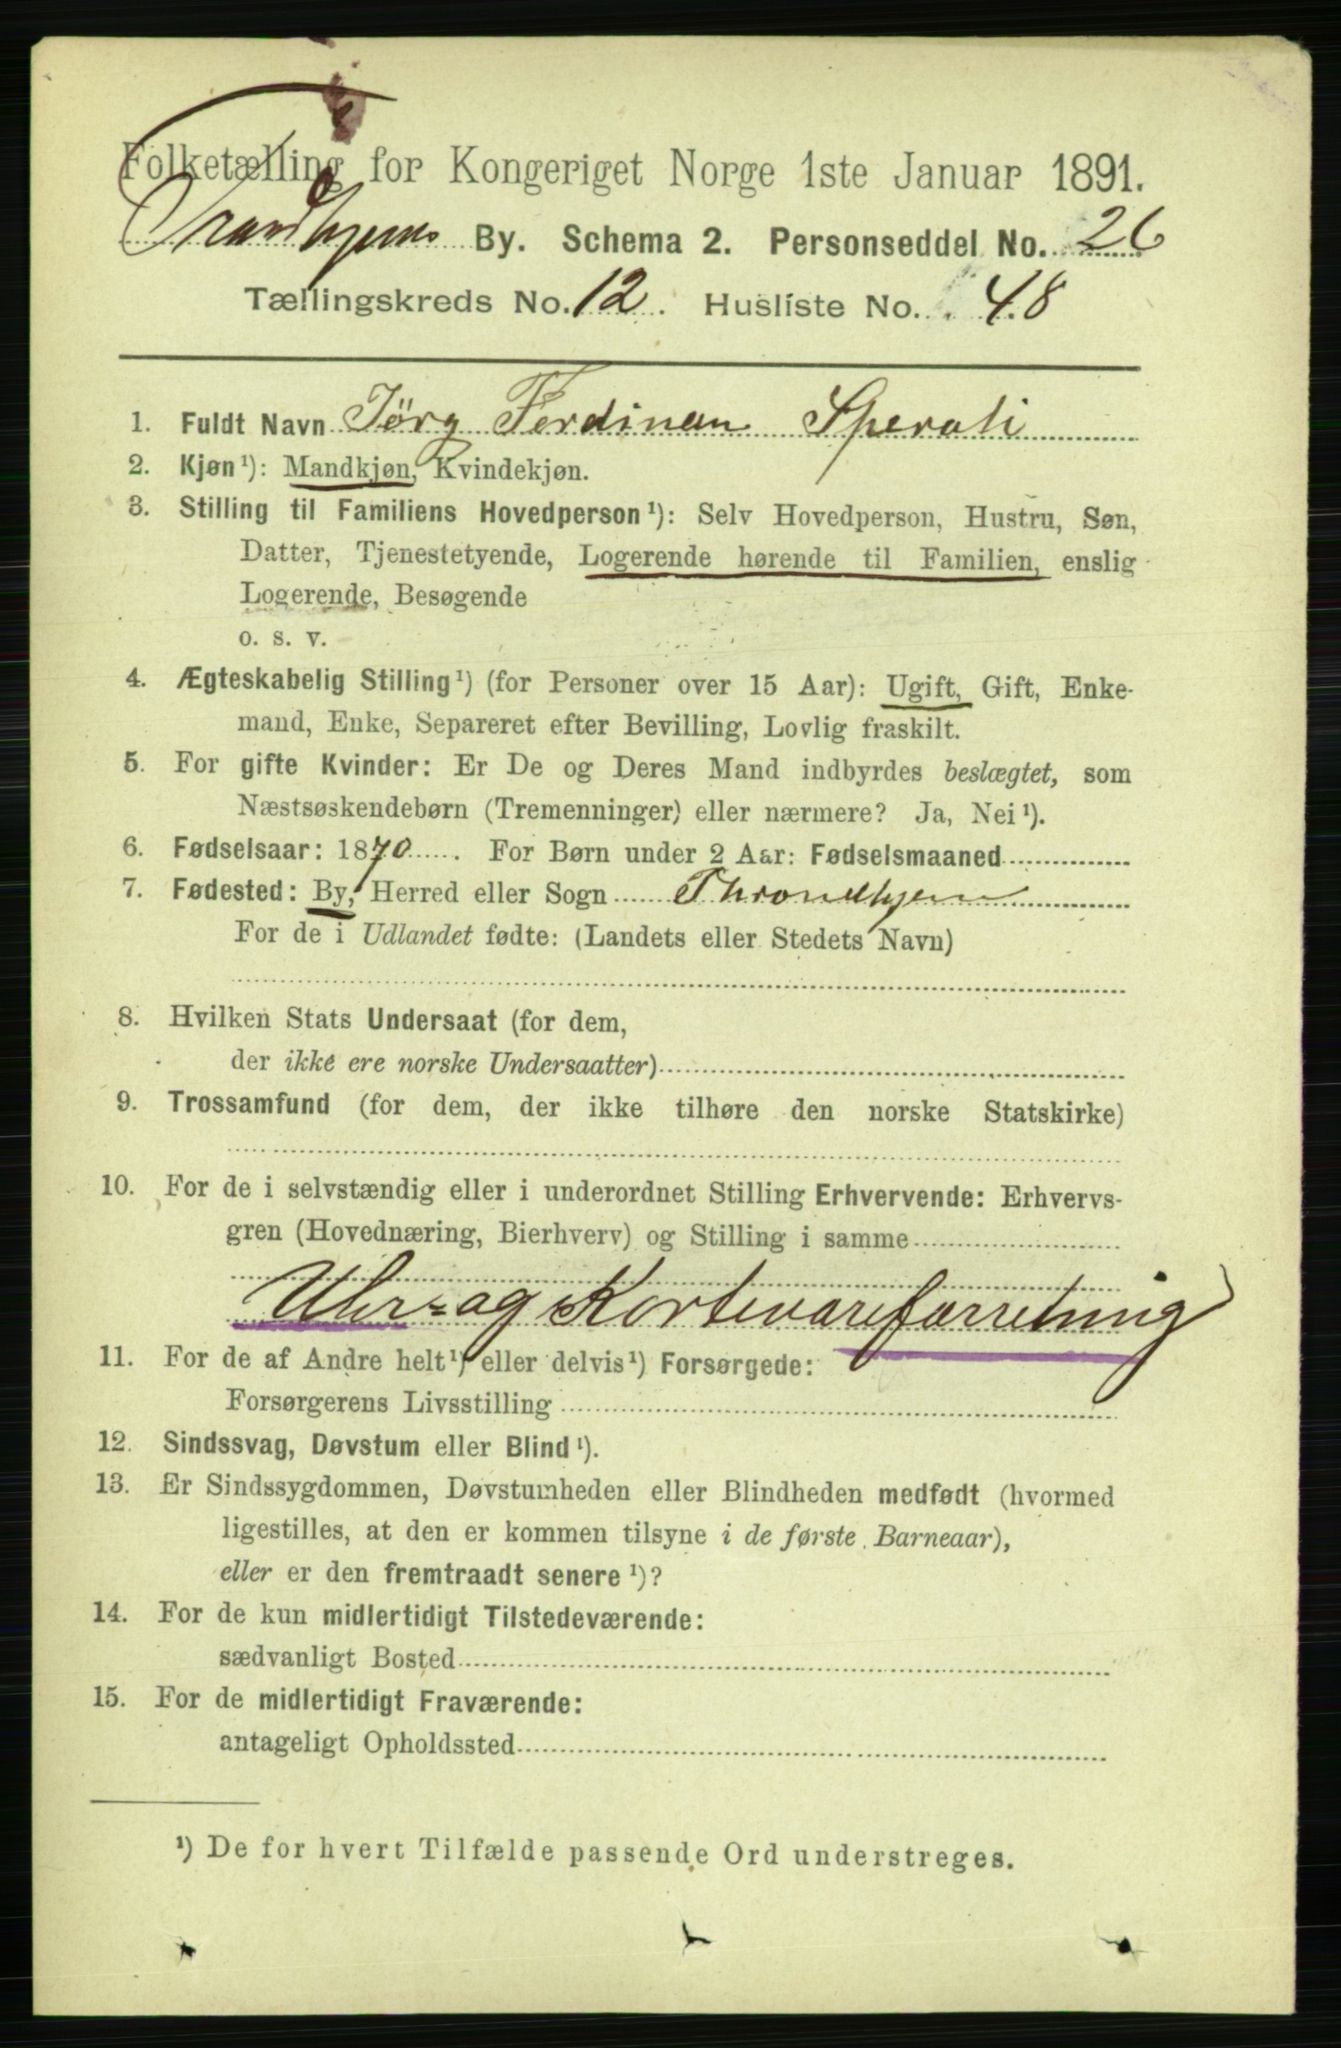 Folketælling for Kongeriget Norge 1ste Januar 1891.
Trondhjems By. Schema 2. Personseddel No. 26
Tællingskreds No. 12. Husliste No. 48
1. Fuldt Navn Jörg Ferdinan Sperati
2. Kjøn ¹): Mandkjøn, Kvindekjøn.
3. Stilling til Familiens Hovedperson ¹): Selv Hovedperson, Hustru, Søn,
Datter, Tjenestetyende, Logerende hørende til Familien, enslig
Logerende, Besøgende
o. s. v.
4. Ægteskabelig Stilling ¹) (for Personer over 15 Aar): Ugift, Gift, Enke-
mand, Enke, Separeret efter Bevilling, Lovlig fraskilt.
5. For gifte Kvinder: Er De og Deres Mand indbyrdes beslægtet, som
Næstsøskendebørn (Tremenninger) eller nærmere? Ja, Nei ¹).
6. Fødselsaar: 1870. For Børn under 2 Aar: Fødselsmaaned
7. Fødested: By, Herred eller Sogn Throndhjem
For de i Udlandet fødte: (Landets eller Stedets Navn)
8. Hvilken Stats Undersaat (for dem,
der ikke ere norske Undersaatter)
9. Trossamfund (for dem, der ikke tilhøre den norske Statskirke)
10. For de i selvstændig eller i underordnet Stilling Erhvervende: Erhvervs-
gren (Hovednæring, Bierhverv) og Stilling i samme
Uhr- og Kortevareforretning
11. For de af Andre helt ¹) eller delvis ¹) Forsørgede:
Forsørgerens Livsstilling
12. Sindssvag, Døvstum eller Blind ¹).
13. Er Sindssygdommen, Døvstumheden eller Blindheden medfødt (hvormed
ligestilles, at den er kommen tilsyne i de første Barneaar),
eller er den fremtraadt senere ¹)?
14. For de kun midlertidigt Tilstedeværende:
sædvanligt Bosted
15. For de midlertidigt Fraværende:
antageligt Opholdssted
¹) De for hvert Tilfælde passende Ord understreges.